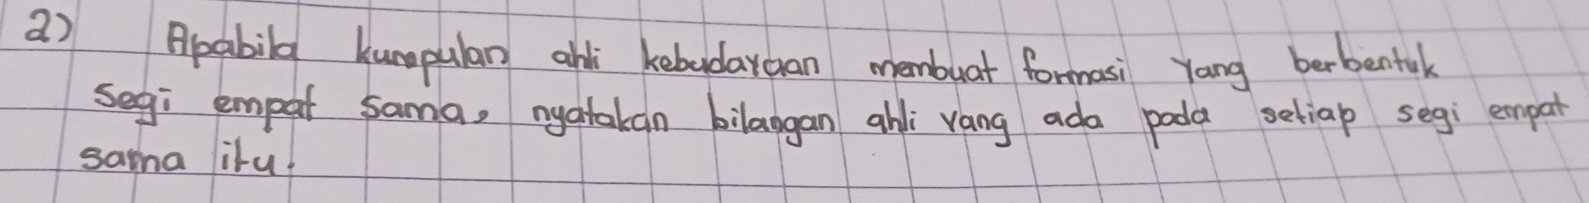 2) Apabila kumpulan ahli kebudayaan membuat formasi yang berbentuk
segi empat sama, nyatakan bilangan ahli yang ada pada setiap segi empat
sama itu.